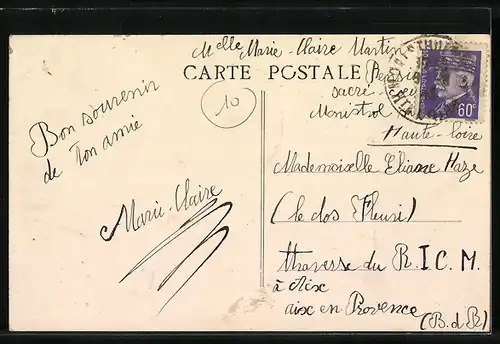 Melle Marie-Claire Martin
CARTE POSTALE
Pensi
sacré-
Monistrol
Haute-Loire
60c
10
Bon souvenir
de Ton amie
Marie-Claire
Mademoiselle Eliane Haze
(le clos Fleuri)
traverse du R.I.C.M.
à Aix
aix en Provence
(B.d.R)